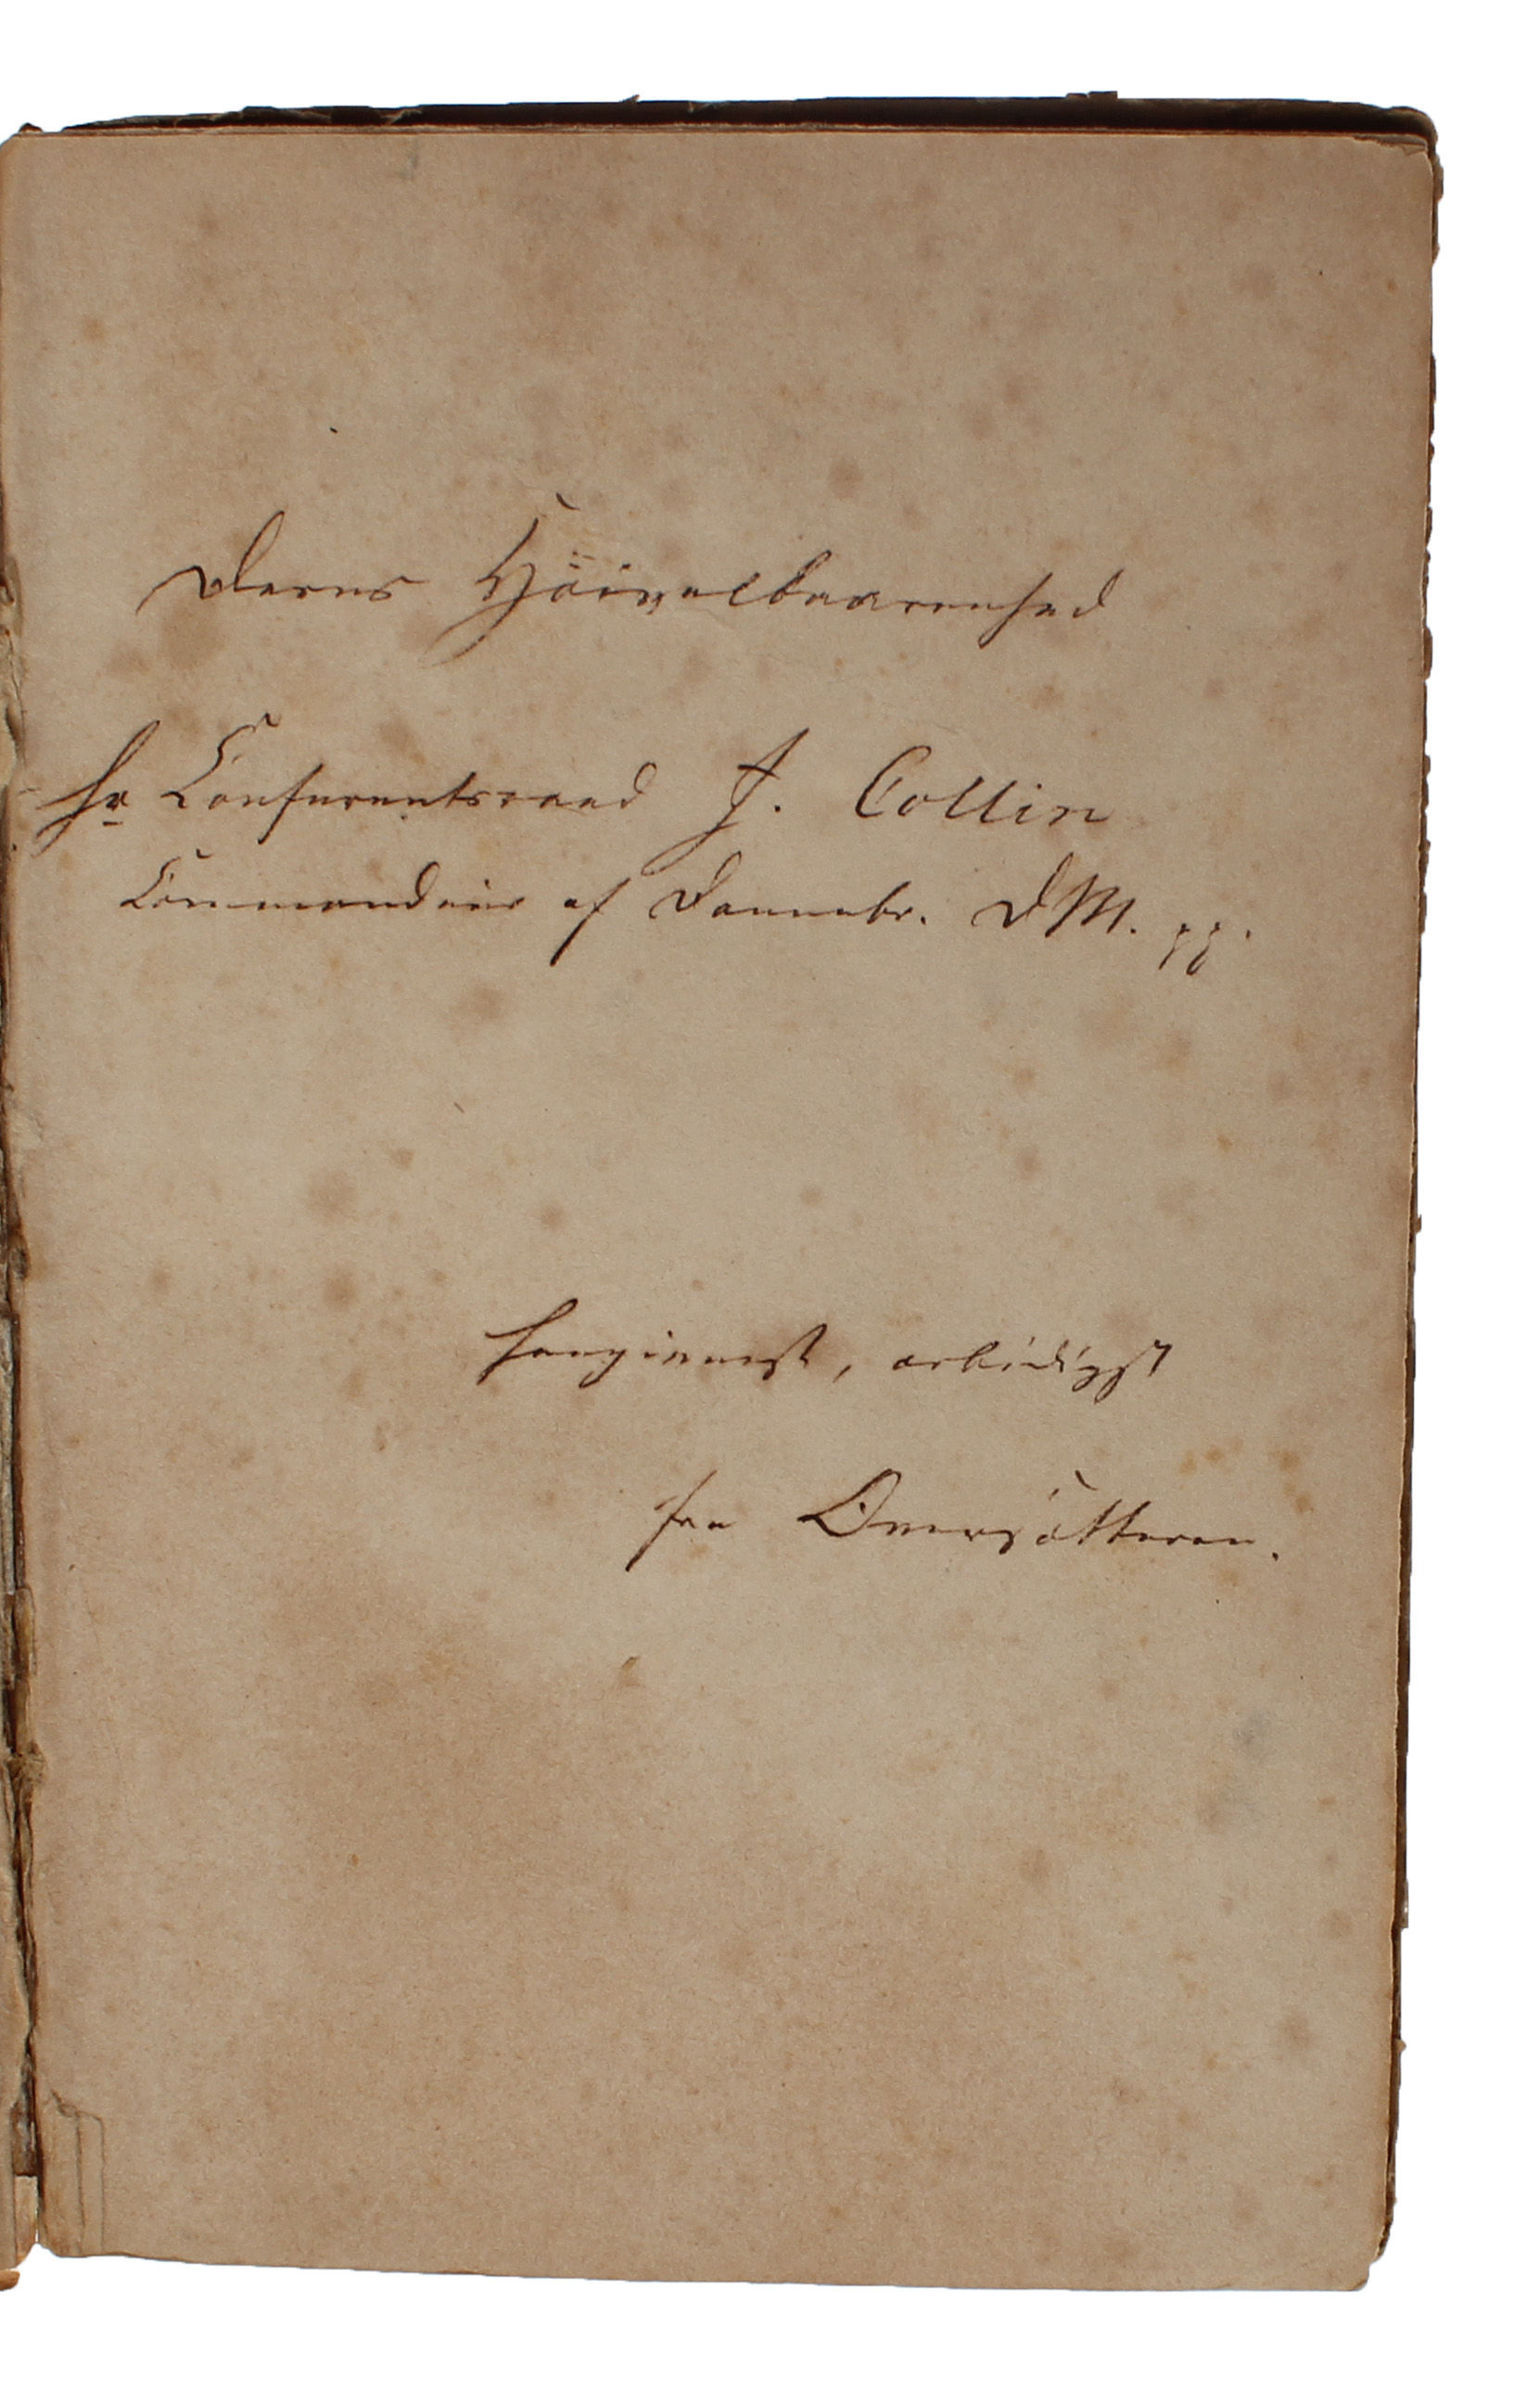 Deres Høivelbaarenhed
Hr Conferentsraad J. Collin
Commandeur af Dannebr. DM. pp.
hengivnest, ærbødigst
fra Oversætteren.